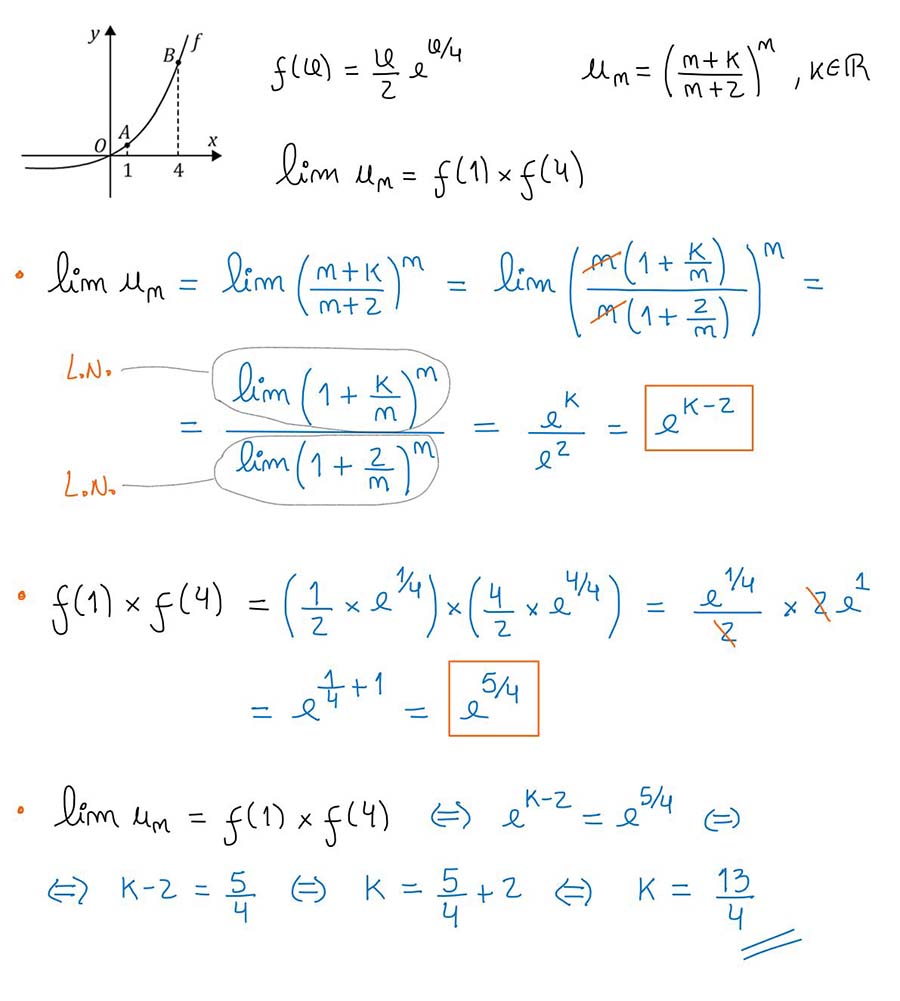 y B f
A
O x
1 4
f(x) = x/2 e^(x/4)
u_n = ((n+K)/(n+2))^n , K∈ℝ
lim u_n = f(1) × f(4)
• lim u_n = lim ((n+K)/(n+2))^n = lim ((n(1 + K/n))/(n(1 + 2/n)))^n =
L.N.
= (lim (1 + K/n)^n)/(lim (1 + 2/n)^n) = e^K/e^2 = e^(K-2)
L.N.
• f(1) × f(4) = (1/2 × e^(1/4)) × (4/2 × e^(4/4)) = e^(1/4)/2 × 2 e^1
= e^(1/4 + 1) = e^(5/4)
• lim u_n = f(1) × f(4) ⇔ e^(K-2) = e^(5/4) ⇔
⇔ K-2 = 5/4 ⇔ K = 5/4 + 2 ⇔ K = 13/4